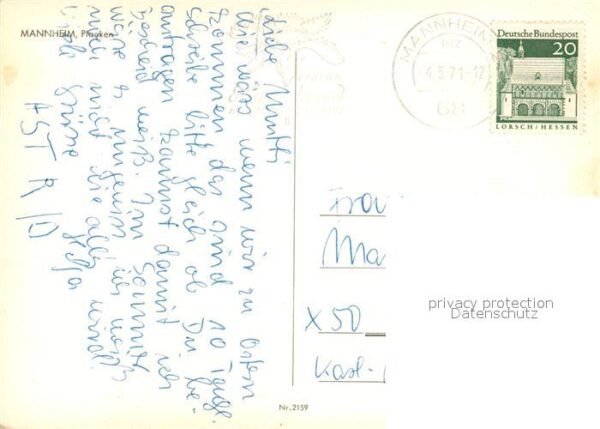 MANNHEIM, Planken
Liebe Mutti
Wie wärs wenn wir zu Ostern
kommen das sind 10 Tage.
Schreibe bitte gleich ob Du be-
antragen kannst damit ich
Bescheid weiß. Im Sommer
wäre es ungewiß ich weiß
noch nicht wie alles wird.
Viele Grüße Helga
MANNHEIM
mz
-4.3.71-12
68
Deutsche Bundespost
20
LORSCH/HESSEN
Frau
Ma
X50
Karl-
privacy protection
Datenschutz
Nr. 2159